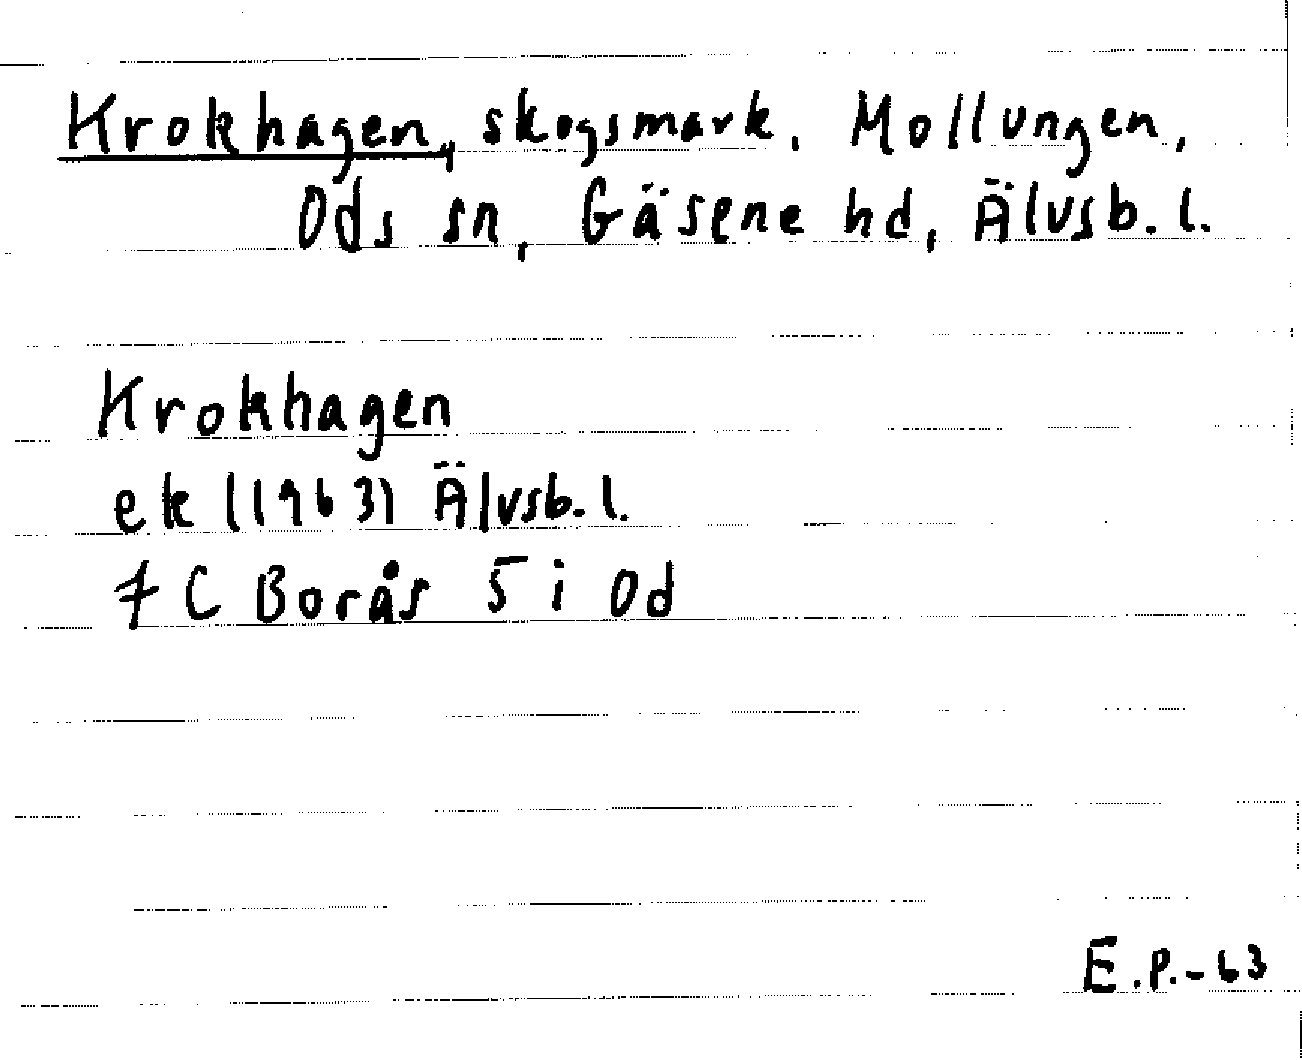 Krokhagen, skogsmark, Mollungen,
Ods sn, Gäsene hd, Älvsb. l.
Krokhagen
ek (1963) Älvsb. l.
7 C Borås 5 i Od
E.P.-63